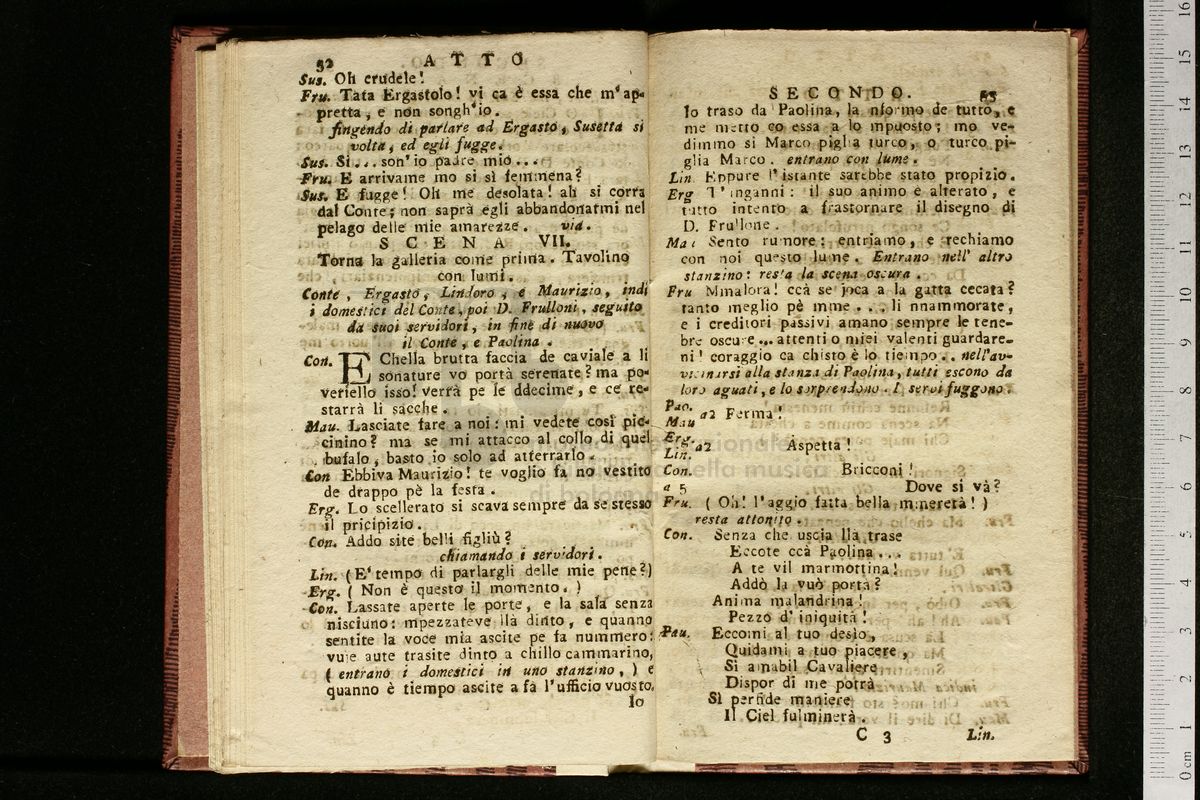 52 ATTO
Sus. Oh crudele!
Fru. Tata Ergastolo! vi ca è essa che m'ap-
pretta, e non songh'io.
fingendo di parlare ad Ergasto, Susetta si
volta, ed egli fugge.
Sus. Si... son' io padre mio...
Fru. E arrivame mo si sì femmena?
Sus. E fugge! Oh me desolata! ah si corra
dal Conte; non saprà egli abbandonarmi nel
pelago delle mie amarezze. via.
SCENA VII.
Torna la galleria come prima. Tavolino
con lumi.
Conte, Ergasto, Lindoro, e Maurizio, indi
i domestici del Conte, poi D. Frulloni, seguito
da suoi servidori, in fine di nuovo
il Conte, e Paolina.
Con. E Chella brutta faccia de caviale a li
sonature vo portà serenate? ma po-
veriello isso! verrà pe le ddecime, e ce re-
starrà li sacche.
Mau. Lasciate fare a noi: mi vedete così pic-
cinino? ma se mi attacco al collo di quel
bufalo, basto io solo ad atterrarlo.
Con Ebbiva Maurizio! te voglio fa no vestito
de drappo pè la festa.
Erg. Lo scellerato si scava sempre da se stesso
il pricipizio.
Con. Addo site belli figliù?
chiamando i servidori.
Lin. (E' tempo di parlargli delle mie pene?)
Erg. ( Non è questo il momento. )
Con. Lassate aperte le porte, e la sala senza
nisciuno: mpezzateve llà dinto, e quanno
sentite la voce mia ascite pe fa nummero:
vuje aute trasite dinto a chillo cammarino,
( entrano i domestici in uno stanzino, ) e
quanno è tiempo ascite a fa l'ufficio vuosto.
Io
SECONDO. 53
Io traso da Paolina, la nformo de tutto, e
me metto co essa a lo mpuosto; mo ve-
dimmo si Marco piglia turco, o turco pi-
glia Marco. entrano con lume.
Lin Eppure l'istante sarebbe stato propizio.
Erg T'inganni: il suo animo è alterato, e
tutto intento a frastornare il disegno di
D. Frullone.
Mau Sento rumore: entriamo, e rechiamo
con noi questo lume. Entrano nell' altro
stanzino: resta la scena oscura.
Fru Mmalora! ccà se joca a la gatta cecata?
tanto meglio pè mme... li nnammorate,
e i creditori passivi amano sempre le tene-
bre oscure... attenti o miei valenti guardare-
ni! coraggio ca chisto è lo tiempo.. nell'av-
vicinarsi alla stanza di Paolina, tutti escono da
loro aguati, e lo sorprendono. I servi fuggono.
Pao.
Mau a2 Ferma!
Erg.
Lin. a2 Aspetta!
Con. Bricconi!
a 5 Dove si và?
Fru. ( Oh! l'aggio fatta bella minereta! )
resta attonito.
Con. Senza che uscia lla trase
Eccote ccà Paolina...
A te vil marmottina!
Addò la vuò porta?
Anima malandrina!
Pezzo d'iniquità!
Pau. Eccomi al tuo desìo,
Quidami a tuo piacere,
Si amabil Cavaliere
Dispor di me potrà
Sì perfide maniere
Il Ciel fulminerà.
C 3 Lin.